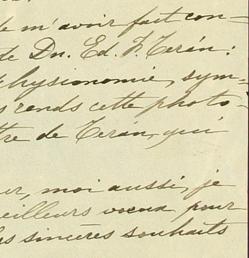 de m'avoir fait con-
de Dn. Ed. F. Terán:
physionomie, sym-
s rends cette photo-
tre de Terán, qui
ur, moi aussi, je
eilleurs voeux pour
les sincères souhaits